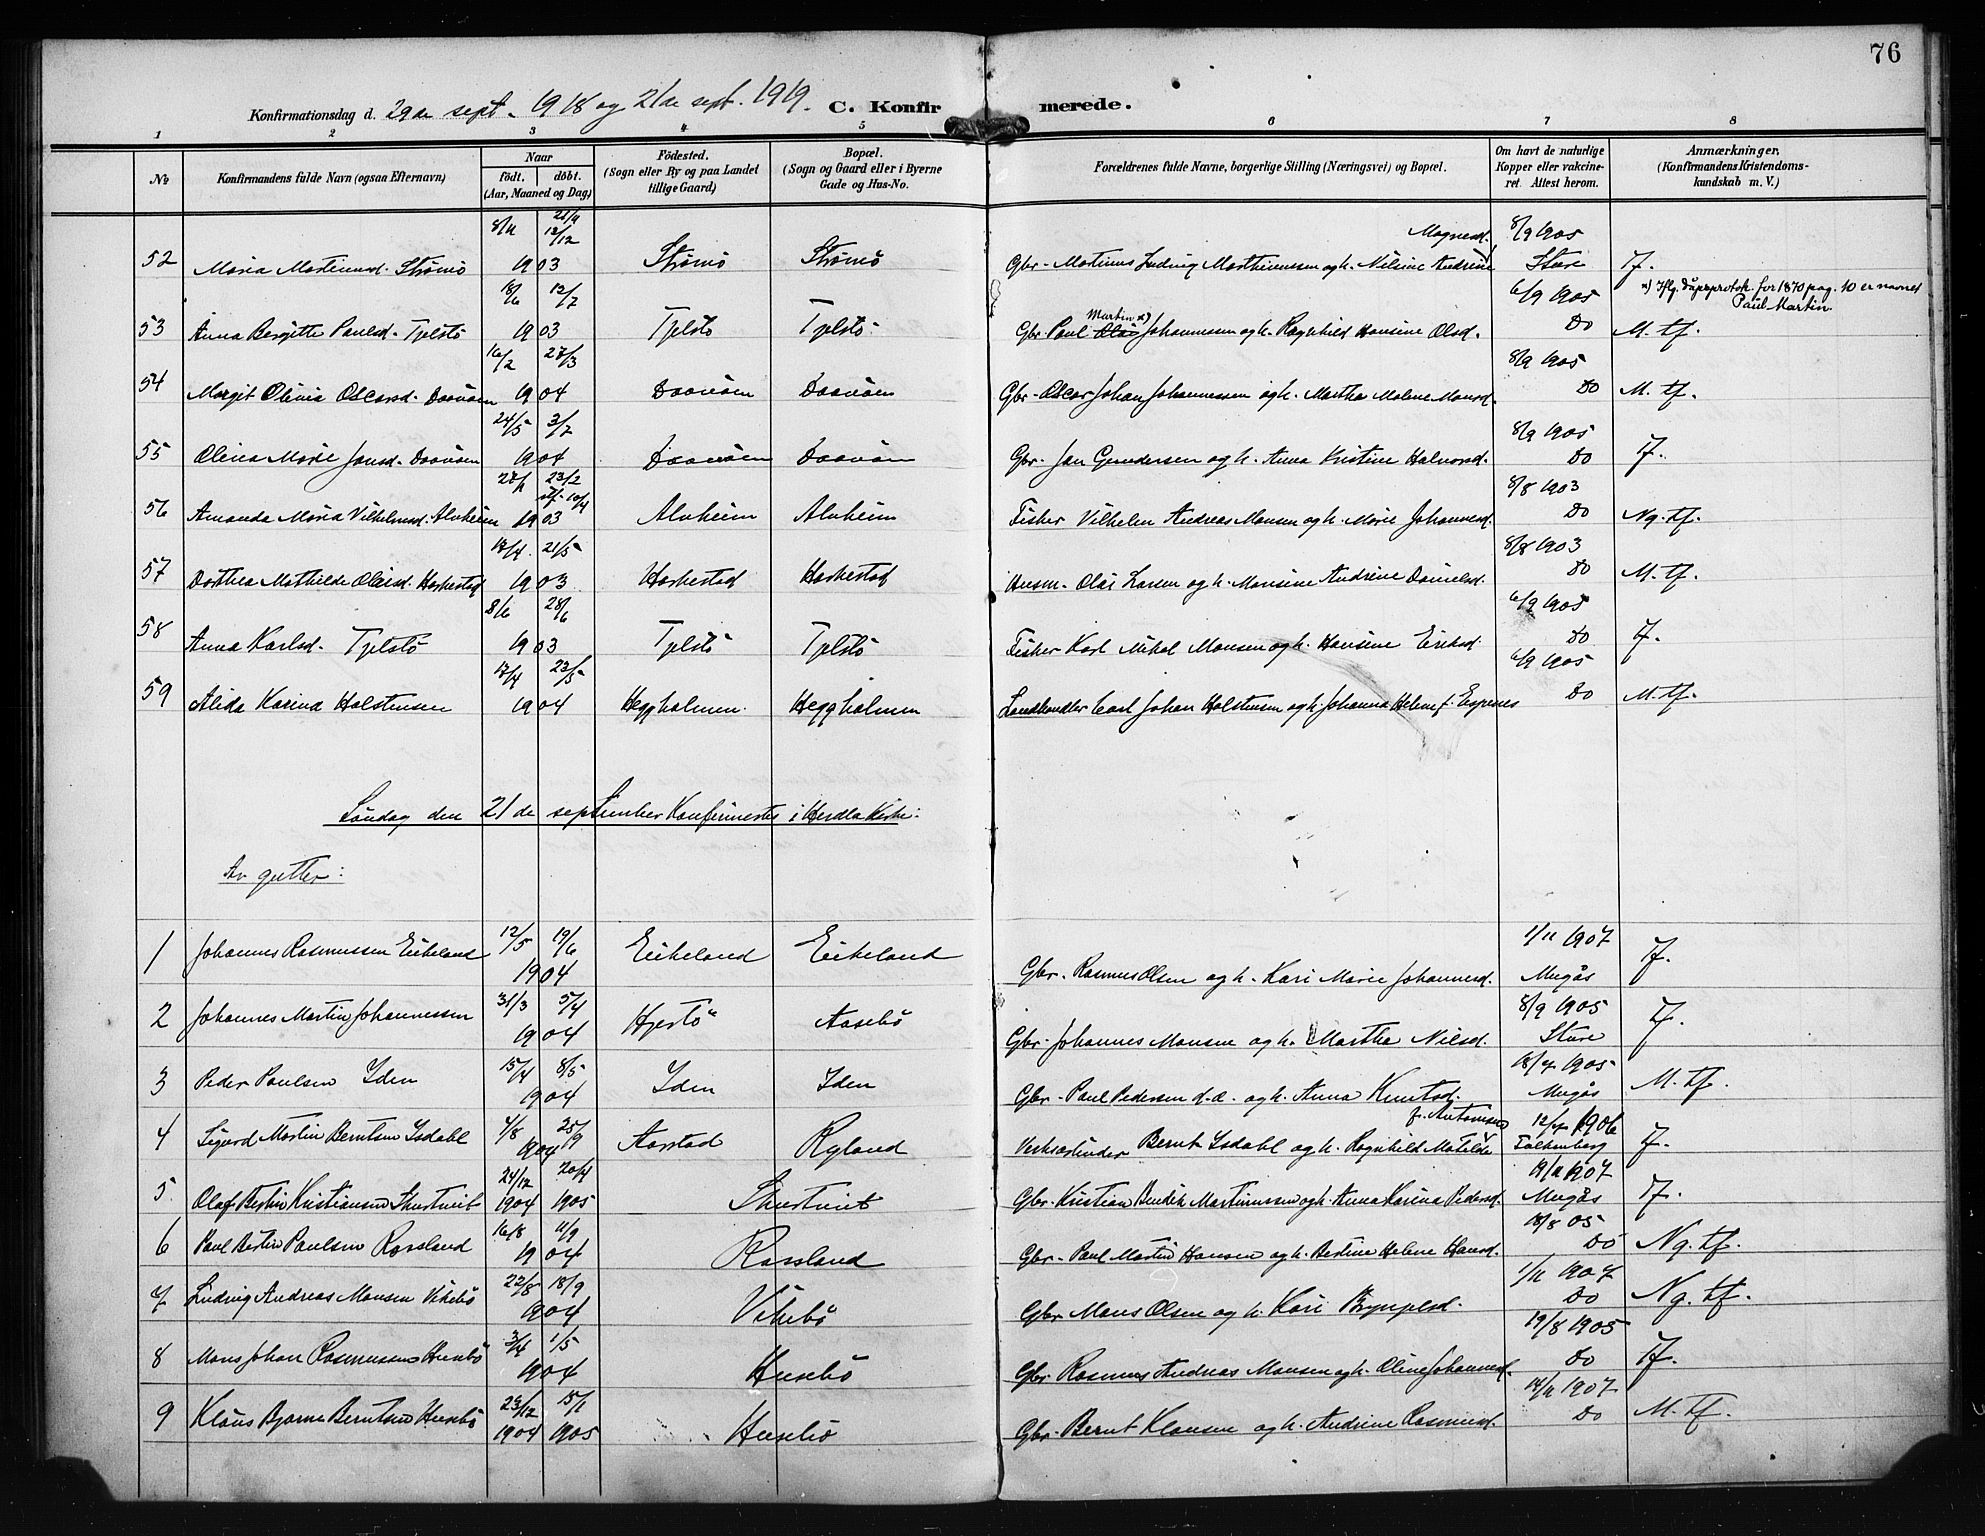 76
Konfirmationsdag d. 29de sept. 1918 og 21de sept. 1919. C. Konfirmerede.
1 2 3 4 5 6 7 8
No Konfirmandens fulde Navn (ogsaa Efternavn) Naar født. døbt. (Aar, Maaned og Dag) Födested. (Sogn eller By og paa Landet tillige Gaard) Bopæl. (Sogn og Gaard eller i Byerne Gade og Hus-No. Forældrenes fulde Navne, borgerlige Stilling (Næringsvei) og Bopæl. Om havt de naturlige Kopper eller vakcineret. Attest herom. Anmærkninger, (Konfirmandens Kristendomskundskab m. V.)
8/11 21/9 13/12 Mognesd. 8/9 1905
52 Maria Martinusd. Strømø 1903 Strømø Strømø Gbr. Martinus Ludvig Marthinussen og h. Nilsine Andrine Sture Tf.
18/6 12/7 6/9 1905 x) Iflg. dåpsprotok. for 1870 pag. 10 er navnet Paul Martin
53 Anna Bergitte Paulsd. Tjelstø 1903 Tjelstø Tjelstø Gbr. Paul Martin x) Johannessen og h. Ragnhild Hansine Olsd. Do M. tf.
16/2 27/3 8/9 1905
54 Margit Olivia Oscarsd. Daavøen 1904 Daavøen Daavøen Gbr. Oscar Johan Johannessen og h. Martha Malene Monsd. Do M. tf.
24/5 3/7 8/9 1905
55 Olina Marie Jansd. Daavøen 1904 Daavøen Daavøen Gbr. Jan Gundersen og h. Anna Kristine Halvorsd. Do Tf.
27/1 23/2 stf. 10/4 8/8 1903
56 Amanda Maria Vilhelmsd. Alvheim 1903 Alvheim Alvheim Fisker Vilhelm Andreas Monsen og h. Marie Johannesd. Do Ng. tf.
17/4 21/5 8/8 1903
57 Dorthea Mathilde Olaisd. Harkestad 1903 Harkestad Harkestad Husm. Olai Larsen og h. Monsine Andrine Danielsd. Do M. tf.
8/6 28/6 6/9 1905
58 Anna Karlsd. Tjelstø 1903 Tjelstø Tjelstø Fisker Karl Mikal Monsen og h. Hansine Eriksd. Do Tf.
17/4 23/5 6/9 1905
59 Alida Karina Holstensen 1904 Heggholmen Heggholmen Landhandler Carl Johan Holstensen og h. Johanna Helene f. Espenes Do M. tf.
Søndag den 21de september konfirmertes i Herdla Kirke:
Av gutter:
12/5 19/6 1/11 1907
1 Johannes Rasmussen Eikeland 1904 Eikeland Eikeland Gbr. Rasmus Olsen og h. Kari Marie Johannesd. Mugås Tf.
31/3 5/4 8/9 1905
2 Johannes Martin Johannessen 1904 Hjertø Aasebø Gbr. Johannes Monsen og h. Martha Nilsd. Sture Tf.
15/4 8/5 18/9 1905
3 Peder Paulsen Iden 1904 Iden Iden Gbr. Paul Pedersen d.e. og h. Anna Knutsd. Mugås M. tf.
4/8 25/9 f. Antonsen 1906
4 Sigurd Martin Berntsen Isdahl 1904 Aarstad Ryland Verksarbeider Bernt Isdahl og h. Ragnhild Matilde Falkenberg Tf.
24/12 20/4 1907
5. Olaf Bertin Kristiansen Skurtveit 1904 1905 Skurtveit Gbr. Kristian Bendik Martinussen og h. Anna Karina Pedersd. Mugås Tf.
16/8 11/9 18/8 05
6 Paul Bertin Paulsen Rossland 1904 Rossland Gbr. Paul Martin Hansen og h. Bertine Helene Hansd. Do Ng. tf.
22/8 18/9 1/11 1907
7 Ludvig Andreas Monsen Vikebø 1904 Vikebø Gbr. Mons Olsen og h. Kari Brynjelsd. Do Ng. tf.
3/4 1/5 19/8 1905
8 Mons Johan Rasmussen Husebø 1904 Husebø Gbr. Rasmus Andreas Monsen og h. Oline Johannesd. Do Tf.
23/12 15/1 14/11 1907
9 Klaus Bjarne Berntsen Husebø 1904 1905 Husebø Gbr. Bernt Klausen og h. Andrine Rasmusd. Do M. tf.